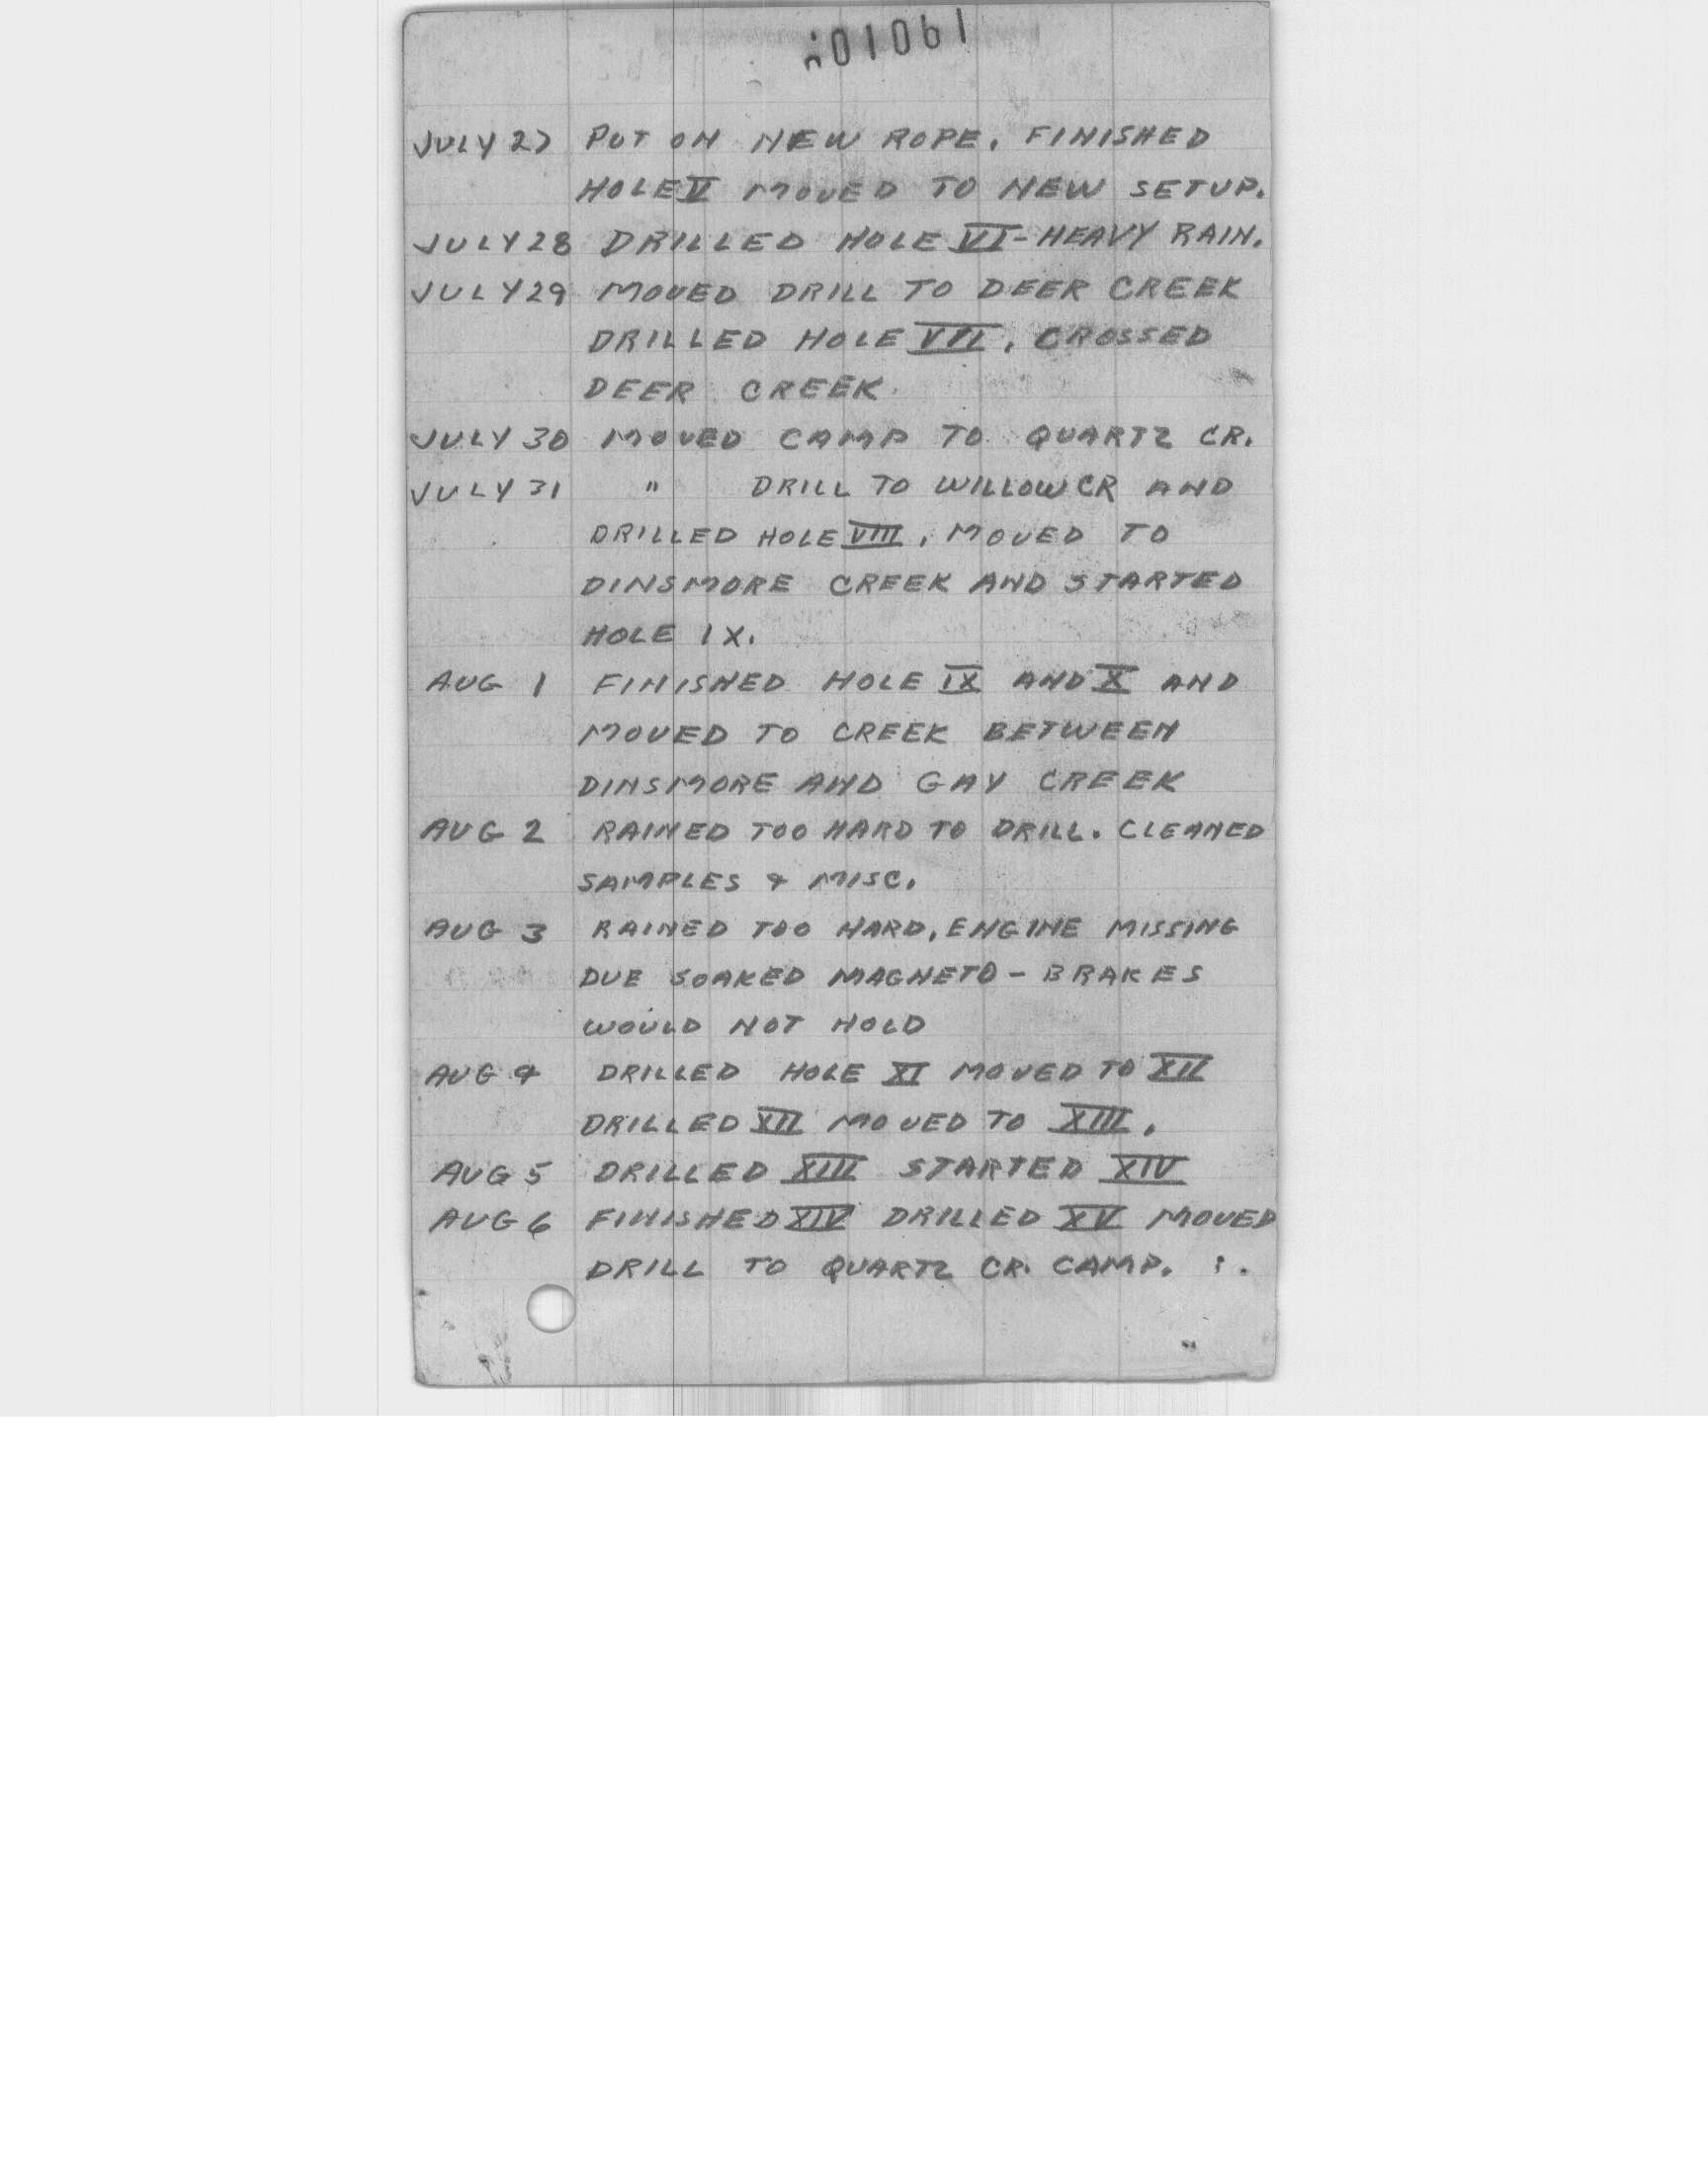 JULY 27 PUT ON NEW ROPE. FINISHED
HOLE V MOVED TO NEW SETUP.
JULY 28 DRILLED HOLE VI - HEAVY RAIN.
JULY 29 MOVED DRILL TO DEER CREEK
DRILLED HOLE VII. CROSSED
DEER CREEK.
JULY 30 MOVED CAMP TO QUARTZ CR.
JULY 31 " DRILL TO WILLOW CR AND
DRILLED HOLE VIII. MOVED TO
DINSMORE CREEK AND STARTED
HOLE IX.
AUG 1 FINISHED HOLE IX AND X AND
MOVED TO CREEK BETWEEN
DINSMORE AND GAY CREEK
AUG 2 RAINED TOO HARD TO DRILL. CLEANED
SAMPLES & MISC.
AUG 3 RAINED TOO HARD, ENGINE MISSING
DUE SOAKED MAGNETO - BRAKES
WOULD NOT HOLD
AUG 4 DRILLED HOLE XI MOVED TO XII
DRILLED XII MOVED TO XIII.
AUG 5 DRILLED XIII STARTED XIV
AUG 6 FINISHED XIV DRILLED XV MOVED
DRILL TO QUARTZ CR. CAMP.